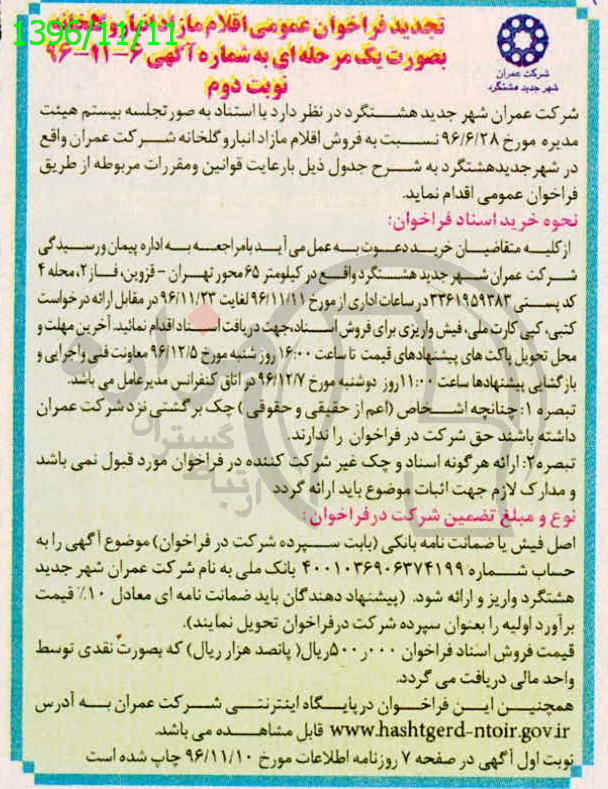 1396/11/11
تجدید فراخوان عمومی اقلام مازاد انبار و گلخانه
بصورت یک مرحله ای به شماره آگهی ۶-۱۱-۹۶
نوبت دوم
شرکت عمران
شهر جدید هشتگرد
شرکت عمران شهر جدید هشتگرد در نظر دارد با استناد به صورتجلسه بیستم هیئت
مدیره مورخ ۹۶/۶/۲۸ نسبت به فروش اقلام مازاد انبار و گلخانه شرکت عمران واقع
در شهر جدید هشتگرد به شرح جدول ذیل بارعایت قوانین ومقررات مربوطه از طریق
فراخوان عمومی اقدام نماید.
نحوه خرید اسناد فراخوان:
ازکلیه متقاضیان خرید دعوت به عمل می آید بامراجعه به اداره پیمان و رسیدگی
شرکت عمران شهر جدید هشتگرد واقع در کیلومتر ۶۵ محور تهران - قزوین، فاز۲، محله ۴
کد پستی ۳۳۶۱۹۵۹۳۸۳ در ساعات اداری از مورخ ۹۶/۱۱/۱۱ لغایت ۹۶/۱۱/۲۳ در مقابل ارائه درخواست
کتبی، کپی کارت ملی، فیش واریزی برای فروش اسناد، جهت دریافت اسناد اقدام نمائید. آخرین مهلت و
محل تحویل پاکت های پیشنهادهای قیمت تا ساعت ۱۶:۰۰ روز شنبه مورخ ۹۶/۱۲/۵ معاونت فنی و اجرایی و
بازگشایی پیشنهادها ساعت ۱۱:۰۰ روز دوشنبه مورخ ۹۶/۱۲/۷ در اتاق کنفرانس مدیرعامل می باشد.
تبصره ۱: چنانچه اشخاص (اعم از حقیقی و حقوقی) چک برگشتی نزد شرکت عمران
داشته باشند حق شرکت در فراخوان را ندارند.
تبصره۲: ارائه هرگونه اسناد و چک غیر شرکت کننده در فراخوان مورد قبول نمی باشد
و مدارک لازم جهت اثبات موضوع باید ارائه گردد
نوع و مبلغ تضمین شرکت در فراخوان:
اصل فیش یا ضمانت نامه بانکی (بابت سپرده شرکت در فراخوان) موضوع آگهی را به
حساب شماره ۴۰۰۱۰۳۶۹۰۶۳۷۴۱۹۹ بانک ملی به نام شرکت عمران شهر جدید
هشتگرد واریز و ارائه شود. (پیشنهاد دهندگان باید ضمانت نامه ای معادل ۱۰٪ قیمت
برآورد اولیه را بعنوان سپرده شرکت درفراخوان تحویل نمایند).
قیمت فروش اسناد فراخوان ۵۰۰ر۰۰۰ریال( پانصد هزار ریال) که بصورت نقدی توسط
واحد مالی دریافت می گردد.
همچنین این فراخوان در پایگاه اینترنتی شرکت عمران به آدرس
www.hashtgerd-ntoir.gov.ir قابل مشاهده می باشد.
نوبت اول آگهی در صفحه ۷ روزنامه اطلاعات مورخ ۹۶/۱۱/۱۰ چاپ شده است